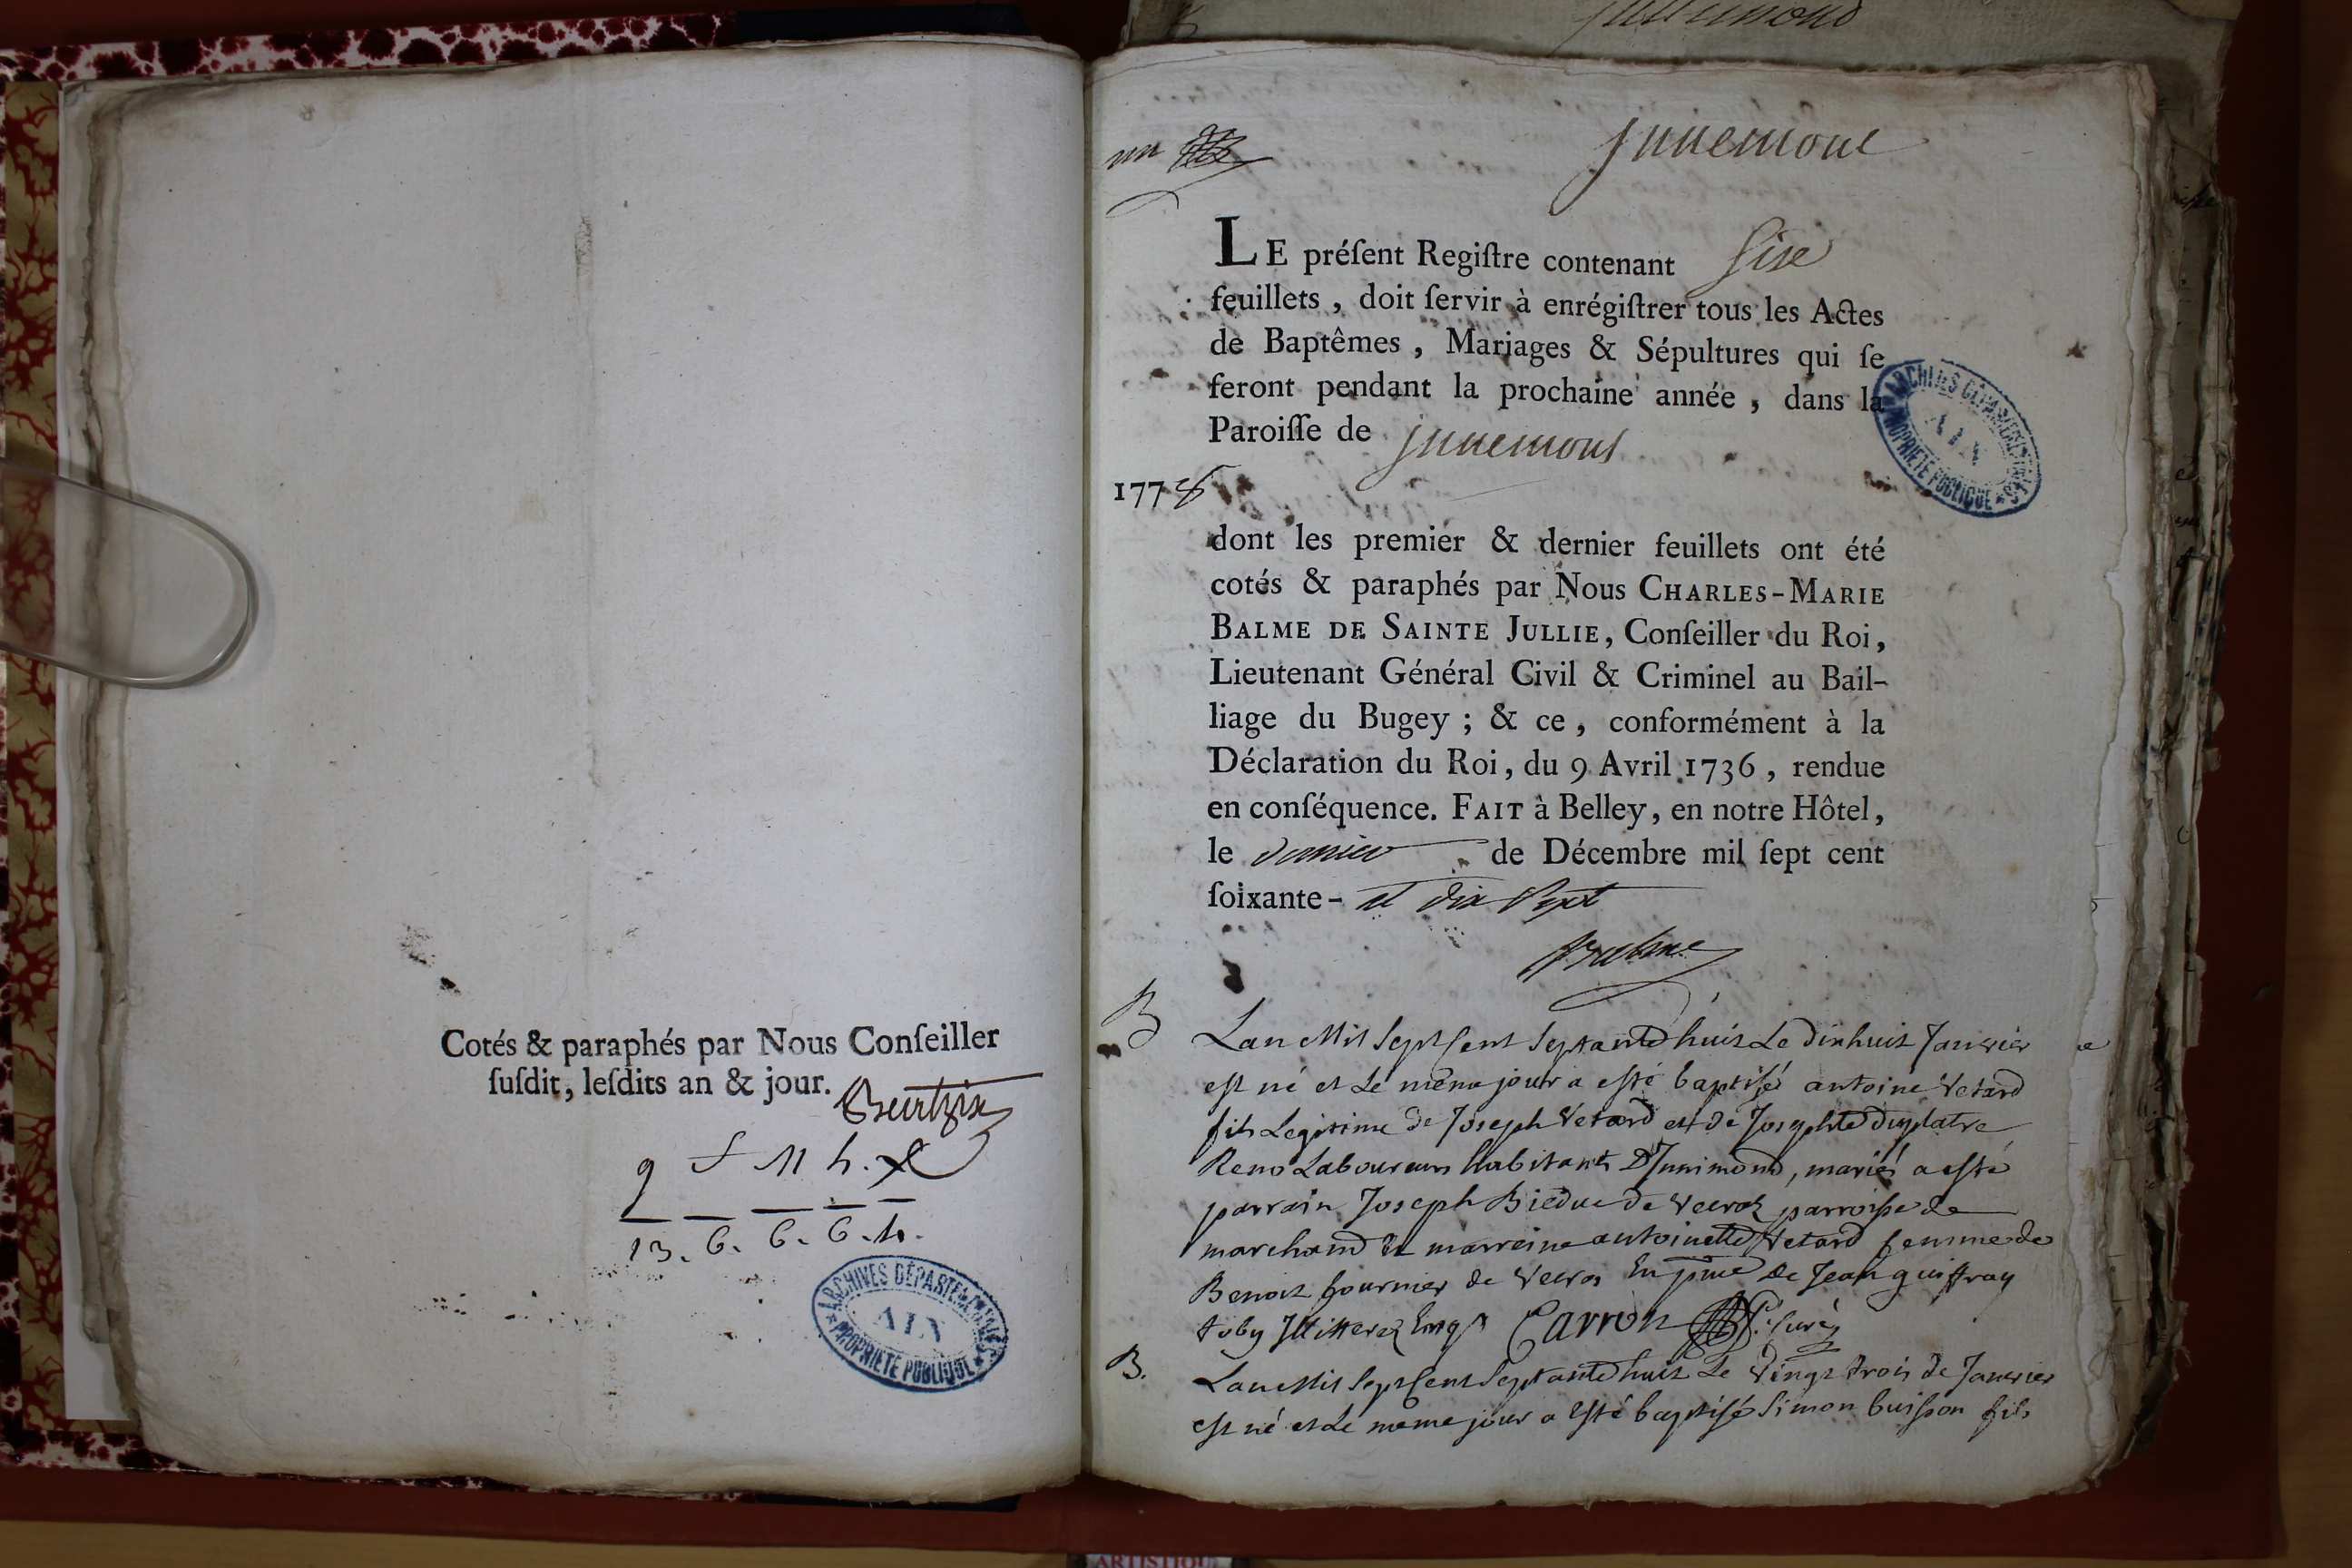 Cotés & paraphés par Nous Conſeiller
ſuſdit, leſdits an & jour.
13. 6. 6. 6.
ARCHIVES DÉPARTEMENTALES
AIN
PROPRIÉTÉ PUBLIQUE
un
Junemont
LE préſent Regiſtre contenant Sise
feuillets, doit ſervir à enrégiſtrer tous les Actes
de Baptêmes, Mariages & Sépultures qui ſe
feront pendant la prochaine année, dans la
Paroiſſe de Junemont
ARCHIVES DÉPARTEMENTALES
AIN
PROPRIÉTÉ PUBLIQUE
1778
dont les premier & dernier feuillets ont été
cotés & paraphés par Nous CHARLES-MARIE
BALME DE SAINTE JULLIE, Conſeiller du Roi,
Lieutenant Général Civil & Criminel au Bail-
liage du Bugey ; & ce, conformément à la
Déclaration du Roi, du 9 Avril 1736, rendue
en conſéquence. FAIT à Belley, en notre Hôtel,
le dernier de Décembre mil ſept cent
ſoixante- et dix Sept
Balme
B Lan Mil Sept Cent Septante huit Le dix huit Janvier
est né et Le même jour a esté baptisé antoine Vetard
fils Legitime de Joseph Vetard et de Josephte duplatre
Laboureurs habitants D'Innimond, mariés a esté
parrain Joseph Bieduc de parroisse de
marchand et marreine antoinette Vetard femme de
Benoit fournier de En pnce de Jean guiffray
Illitterez Carron Curé
B. Lan Mil Sept Cent Septante huit Le Vingt trois de Janvier
est né et Le meme jour a esté baptisé Simon buisson fils